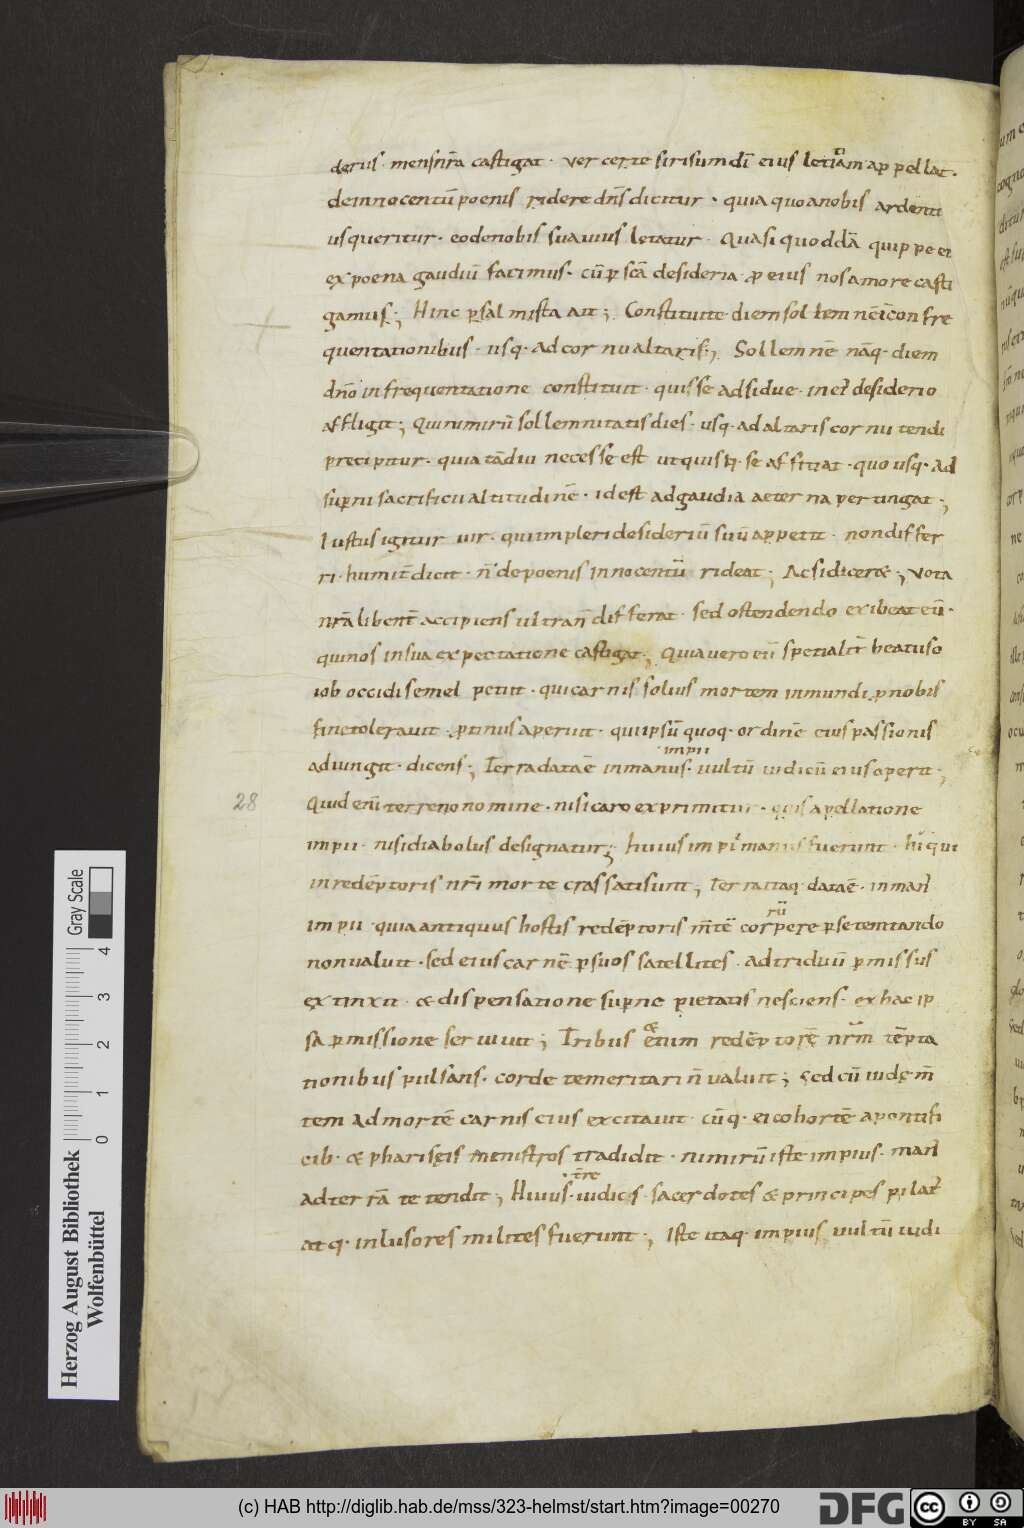 derus · mensnr̄a castigat · vel certe sirisum dī eius letitiam appellat ·
deinnocentū poenis ridere dn̄s dicitur · quia quo a nobis ardenti
us queritur · eo de nobis suavius letatur · Quasi quoddā quippe ei
ex poena gaudiū facimus · cū p̄ scā desideria p eius nos amore casti
gamus ; Hinc psalmista ait ; Constituite diem sollemnē in con fre
quentationibus · usq · ad cornu altaris ; Sollemnē nāq · diem
dn̄o in frequentatione constituit · quis se adsidue · in ei desiderio
affligit ; Qui nimirū sollemnitatis dies · usq · ad altaris cornu tendi
precipitur · quia tādiu necesse est ut quisq · se affligat · quo usq · ad
supni sacrificii altitudinē · id est ad gaudia aeterna pertingat ;
Iustus igitur vir · qui impleri desideriū suū appetit · non differ
ri · humit̄ dicit · n̄ de poenis innocentū rideat ; Ac si diceret ; vota
nr̄a libent̄ accipiens ultra n̄ differat · sed ostendendo exibeat eū ·
qui nos in sua expectatione castigat ; Quia vero eū specialit̄ beatus
iob occidi semel petiit · qui carnis solius mortem in mundi p nobis
fine toleravit · ptinus aperuit · qui ipsū quoq · ordinē eius passionis
adiungit · dicens ; Terra data ē in manus impii · vultū iudicū eius operit ;
28
Quid enī terreno nomine · nisi caro exprimitur · quis apellatione
impii · nisi diabolus designatur ; huius impii manus fuerunt · hi qui
in redēptoris nr̄i morte crassati sunt ; Terra itaq · data ē · in man̄
impii · quia antiquus hostis redēptoris m̄tē corrūpere p se temtando
non valuit · sed eius carnē p suos satellites · ad triduū pmissus
extinxit · & dispensatione supne pietatis nesciens · ex hac ip
sa pmissione servivit ; Tribus & enim redēptorē nr̄m tēpta
tionibus pulsans · corde temeritari n̄ valuit ; sed cū iudę m̄
tem ad mortē carnis eius excitavit · cūq · ei cohortē a pontifi
cib · & phariseis ministros tradidit · nimirū iste impius · man̄
ad terrā tetendit ; Huius · t̄re iudices · sacerdotes & principes pilat̄
atq · inlusores milites fuerunt ; Iste itaq · impius vultū iudi
Herzog August Bibliothek
Wolfenbüttel
0 1 2 3 4
Gray Scale
(c) HAB http://diglib.hab.de/mss/323-helmst/start.htm?image=00270
DFG
cc BY SA